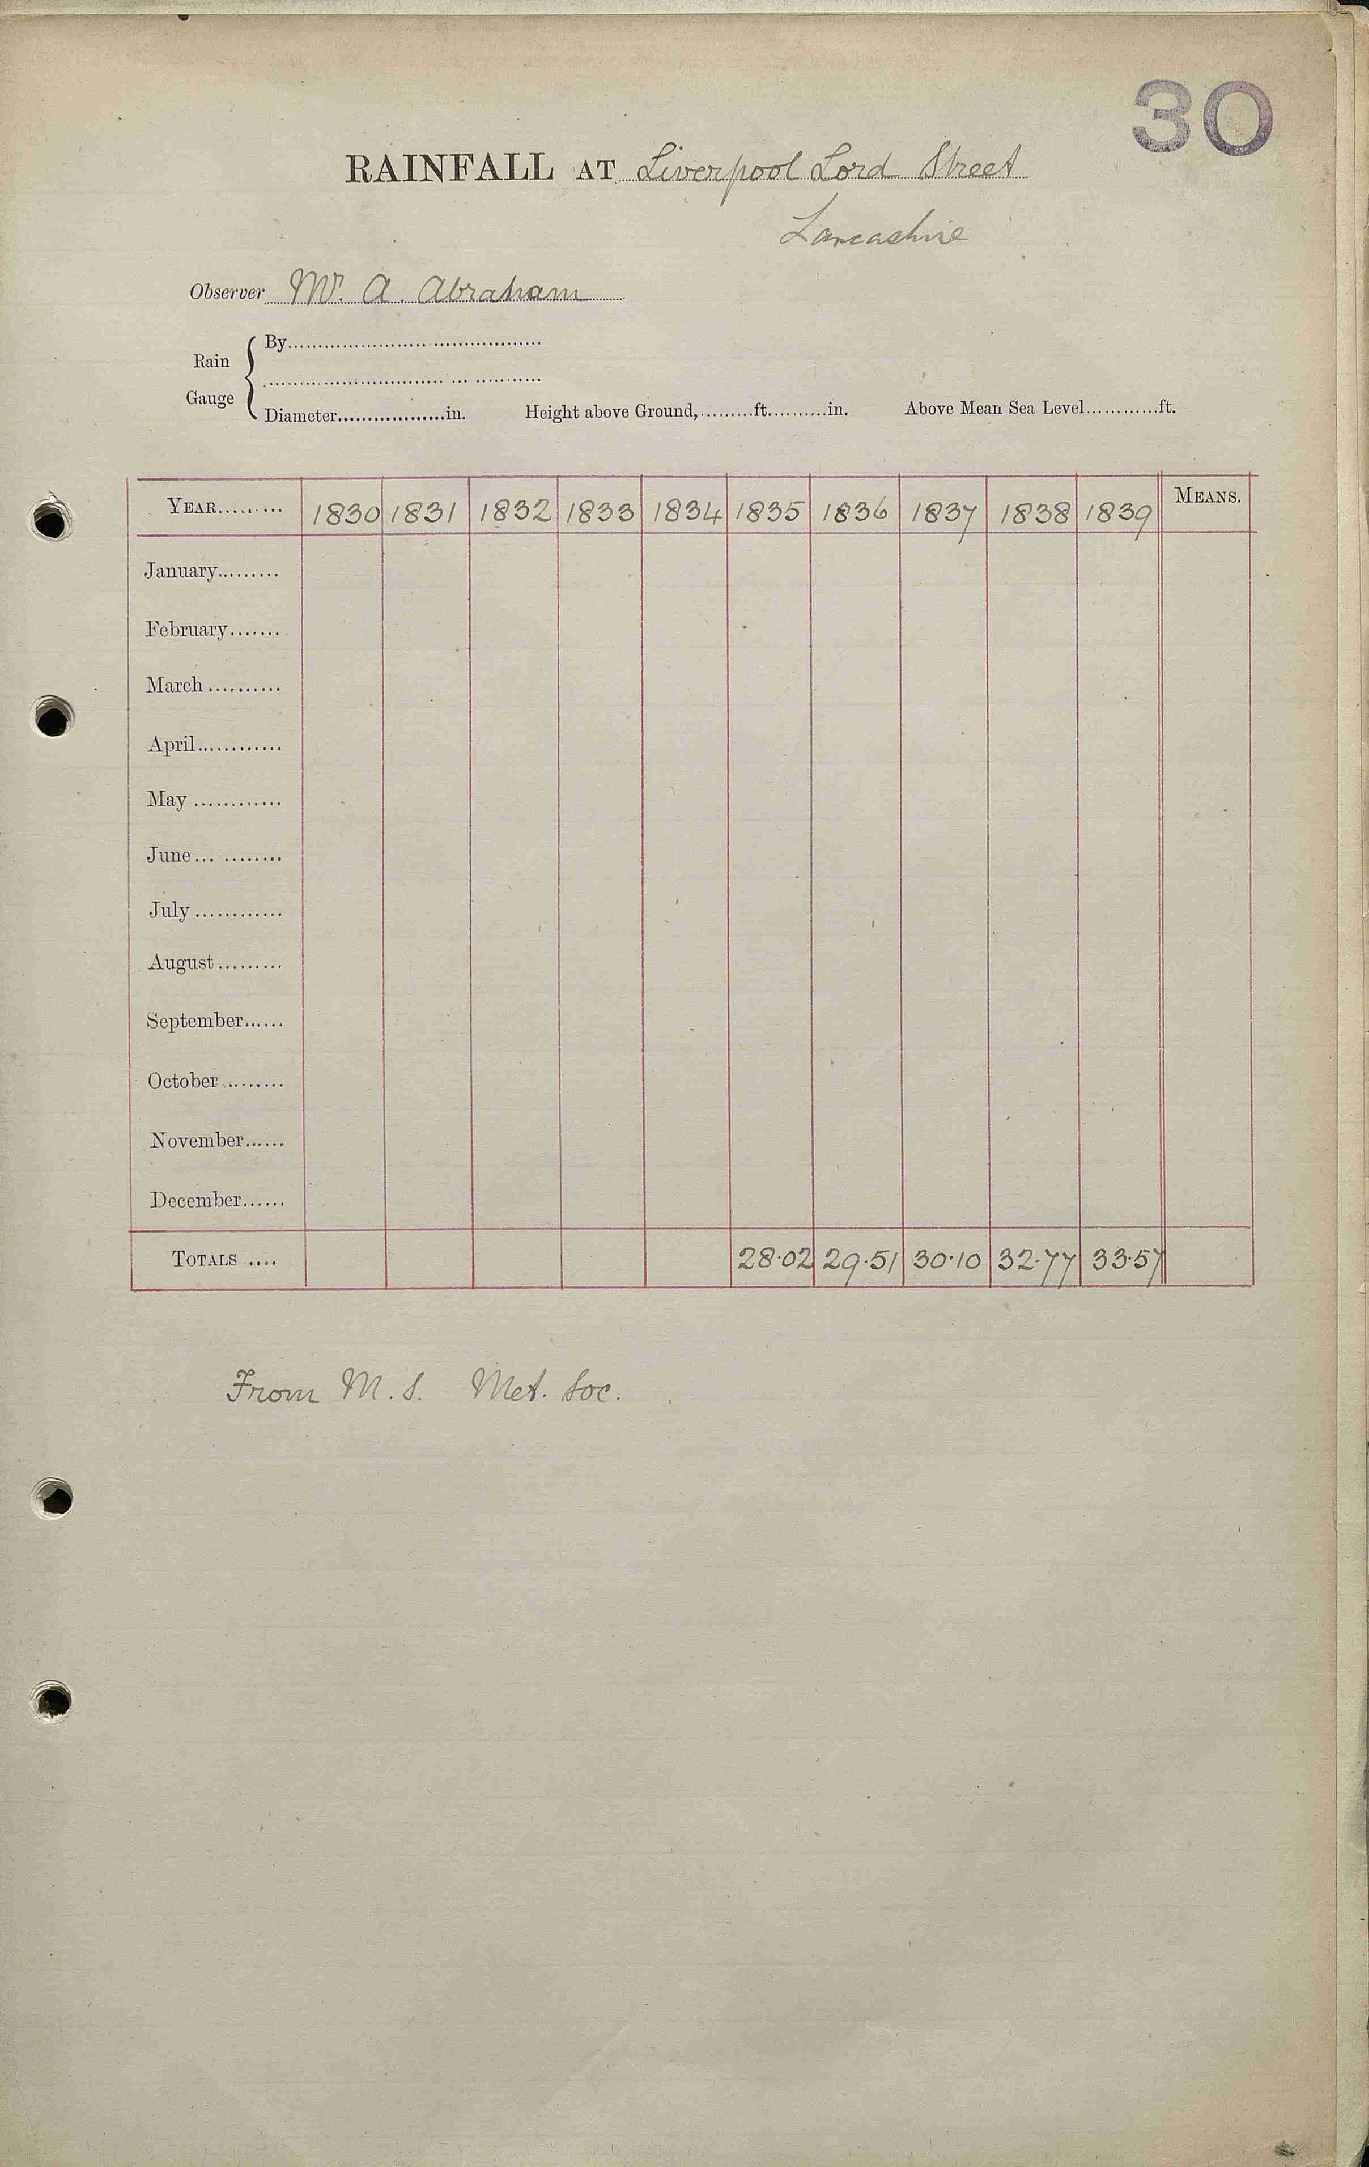 30
RAINFALL AT Liverpool Lord Street
Lancashire
Observer Mr. A. Abraham
Rain Gauge { By........................................
........................................
Diameter..................in. Height above Ground,.........ft..........in. Above Mean Sea Level............ft.
YEAR......... 1830 1831 1832 1833 1834 1835 1836 1837 1838 1839 MEANS.
January.........
February.......
March..........
April............
May............
June............
July............
August.........
September......
October.........
November......
December......
TOTALS .... 28.02 29.51 30.10 32.77 33.57
From M.S. Met. Soc.